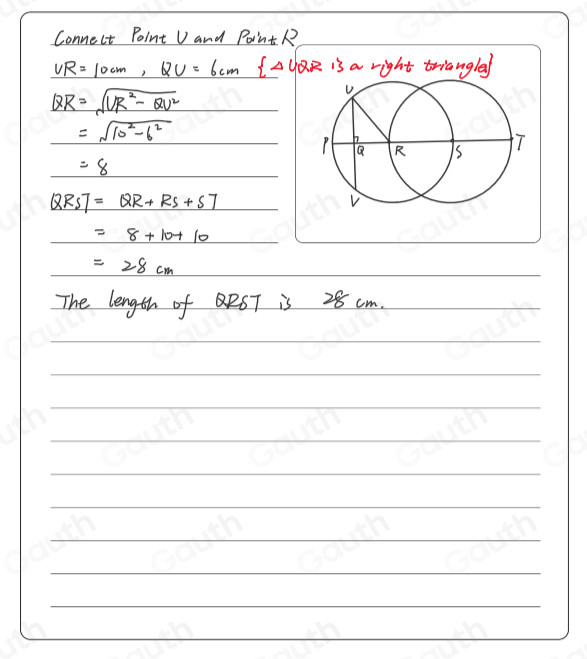 Connect Point U and Point R
UR = 10cm, QU = 6cm {△UQR is a right triangle}
QR = √UR² - QU²
= √10² - 6²
= 8
QRST = QR + RS + ST
= 8 + 10 + 10
= 28 cm
The length of QRST is 28 cm.
U
P Q R S T
V
Gauth